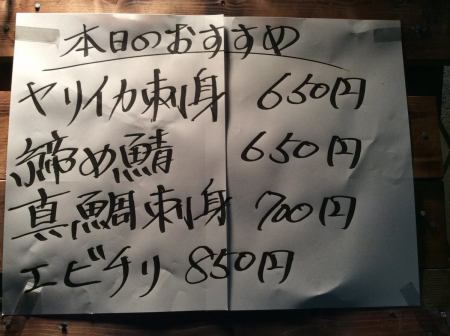 本日のおすすめ
ヤリイカ刺身 650円
締め鯖 650円
真鯛刺身 700円
エビチリ 850円